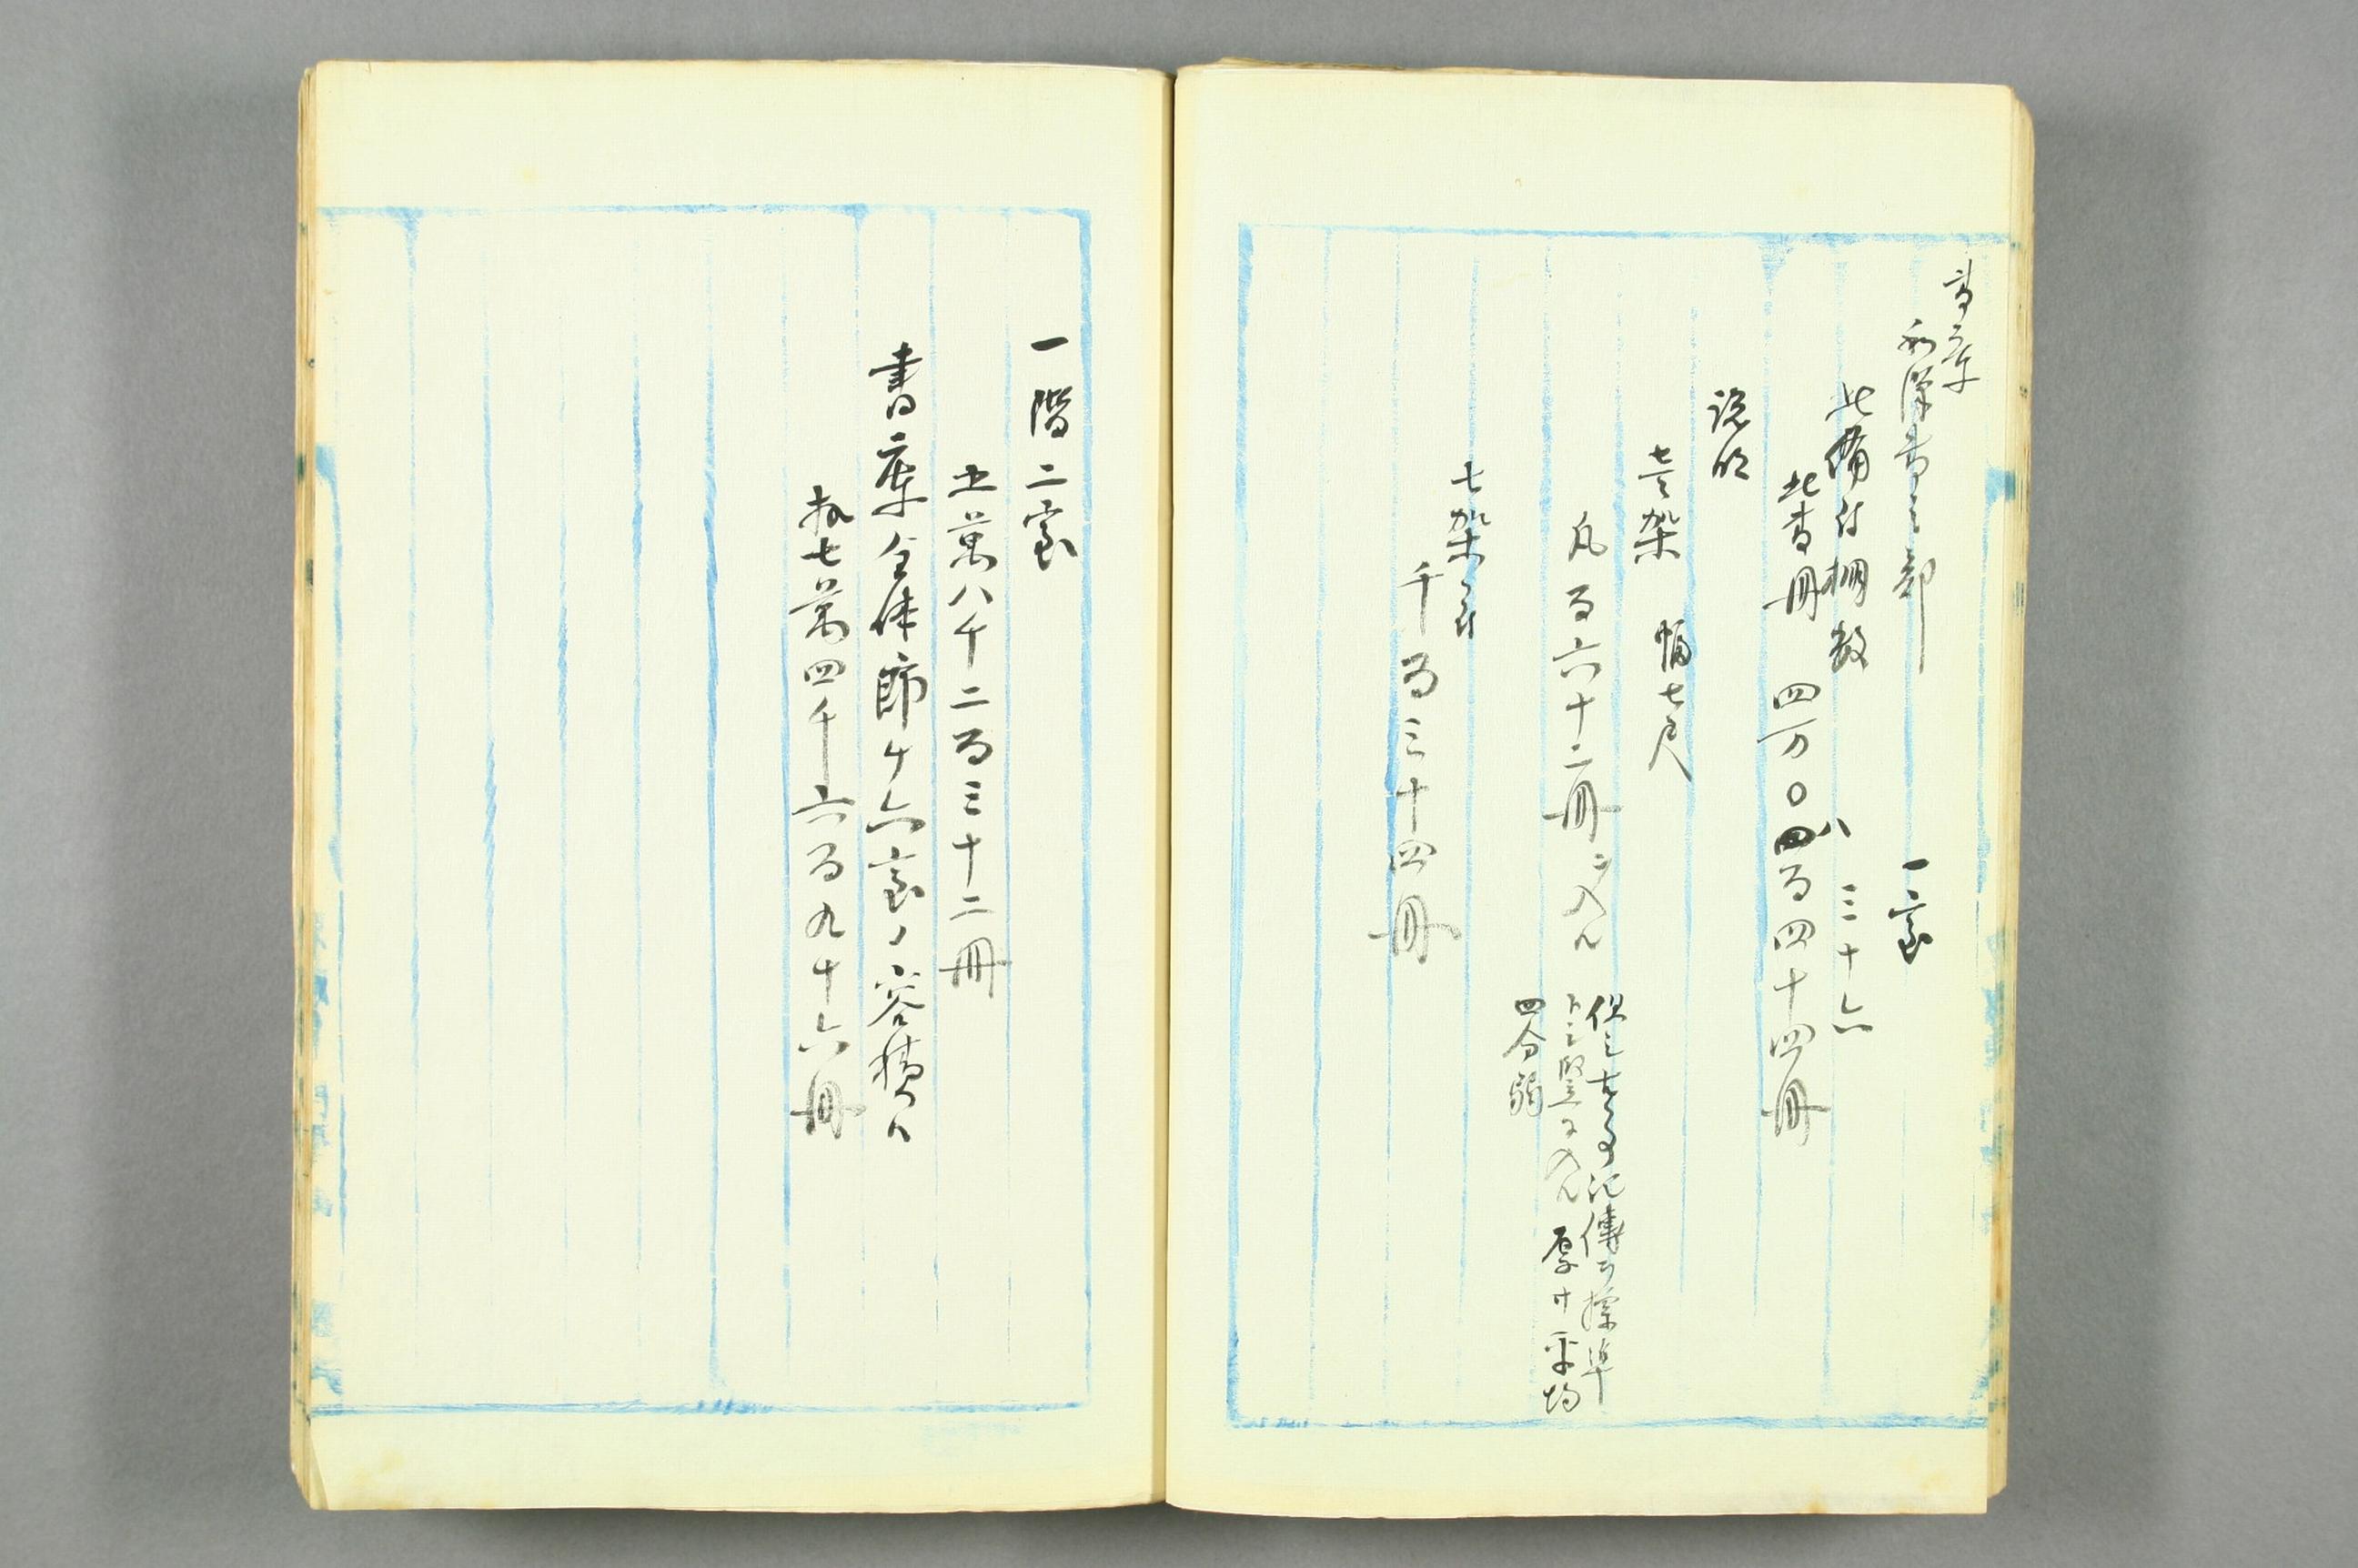 書庫
和漢書之部　一室
此備付棚数　三十六
此書冊　四万〇八百四十四冊
説明
壱架　幅七尺
凡百六十二冊ヲ入ル
但シ古事記傳ヲ標準
トシ竪ニ入ル　厚サ平均
四分弱
七架ニ付
千百三十四冊
一階二室
五萬八千二百三十二冊
書庫全体即チ六室ノ容積ハ
拾七萬四千六百九十六冊